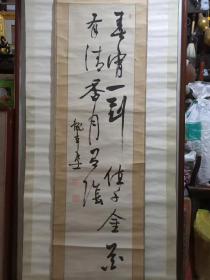 春宵一刻值千金花
有清香月有陰